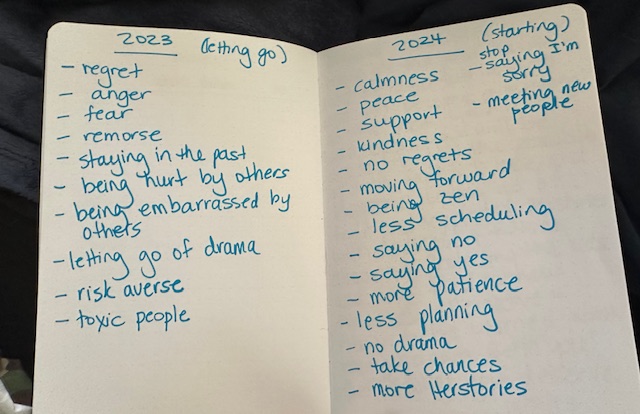 2023 (letting go)
- regret
- anger
- fear
- remorse
- staying in the past
- being hurt by others
- being embarrassed by
others
- letting go of drama
- risk averse
- toxic people
2024 (starting)
- calmness
- peace
- support
- kindness
- no regrets
- moving forward
- being zen
- less scheduling
- saying no
- saying yes
- more patience
- less planning
- no drama
- take chances
- more Herstories
stop
- saying I'm
sorry
- meeting new
people